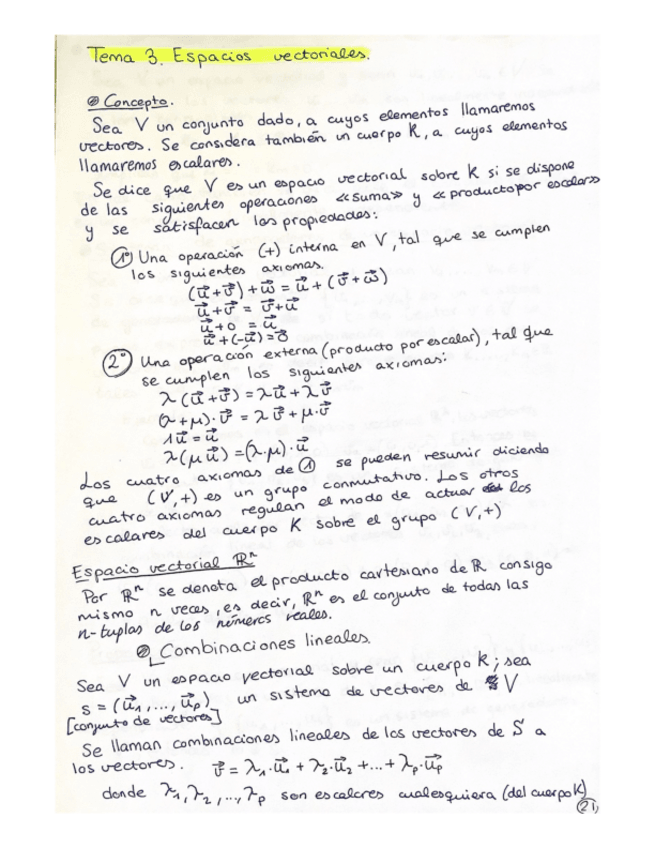 Tema 3. Espacios vectoriales.
Concepto.
Sea V un conjunto dado, a cuyos elementos llamaremos
vectores. Se considera también un cuerpo K, a cuyos elementos
llamaremos escalares.
Se dice que V es un espacio vectorial sobre K si se dispone
de las siguientes operaciones «suma» y «producto por escalar»
y se satisfacen las propiedades:
1º Una operación (+) interna en V, tal que se cumplen
los siguientes axiomas.
(u⃗+v⃗)+w⃗ = u⃗+(v⃗+w⃗)
u⃗+v⃗ = v⃗+u⃗
u⃗+0 = u⃗
u⃗+(-u⃗)=0⃗
2º Una operación externa (producto por escalar), tal que
se cumplen los siguientes axiomas:
λ(u⃗+v⃗)=λu⃗+λv⃗
(λ+μ)·v⃗ = λv⃗+μ·v⃗
1u⃗=u⃗
λ(μu⃗)=(λ·μ)·u⃗
Los cuatro axiomas de 1 se pueden resumir diciendo
que (V,+) es un grupo conmutativo. Los otros
cuatro axiomas regulan el modo de actuar los
escalares del cuerpo K sobre el grupo (V,+)
Espacio vectorial ℝⁿ
Por ℝⁿ se denota el producto cartesiano de ℝ consigo
mismo n veces, es decir, ℝⁿ es el conjunto de todas las
n-tuplas de los números reales.
Combinaciones lineales.
Sea V un espacio vectorial sobre un cuerpo K; sea
s = (u⃗₁,...,u⃗ₚ) un sistema de vectores de V
[conjunto de vectores]
Se llaman combinaciones lineales de los vectores de S a
los vectores. v⃗ = λ₁·u⃗₁ + λ₂·u⃗₂ +...+ λₚ·u⃗ₚ
donde λ₁,λ₂,...,λₚ son escalares cualesquiera (del cuerpo K)
21